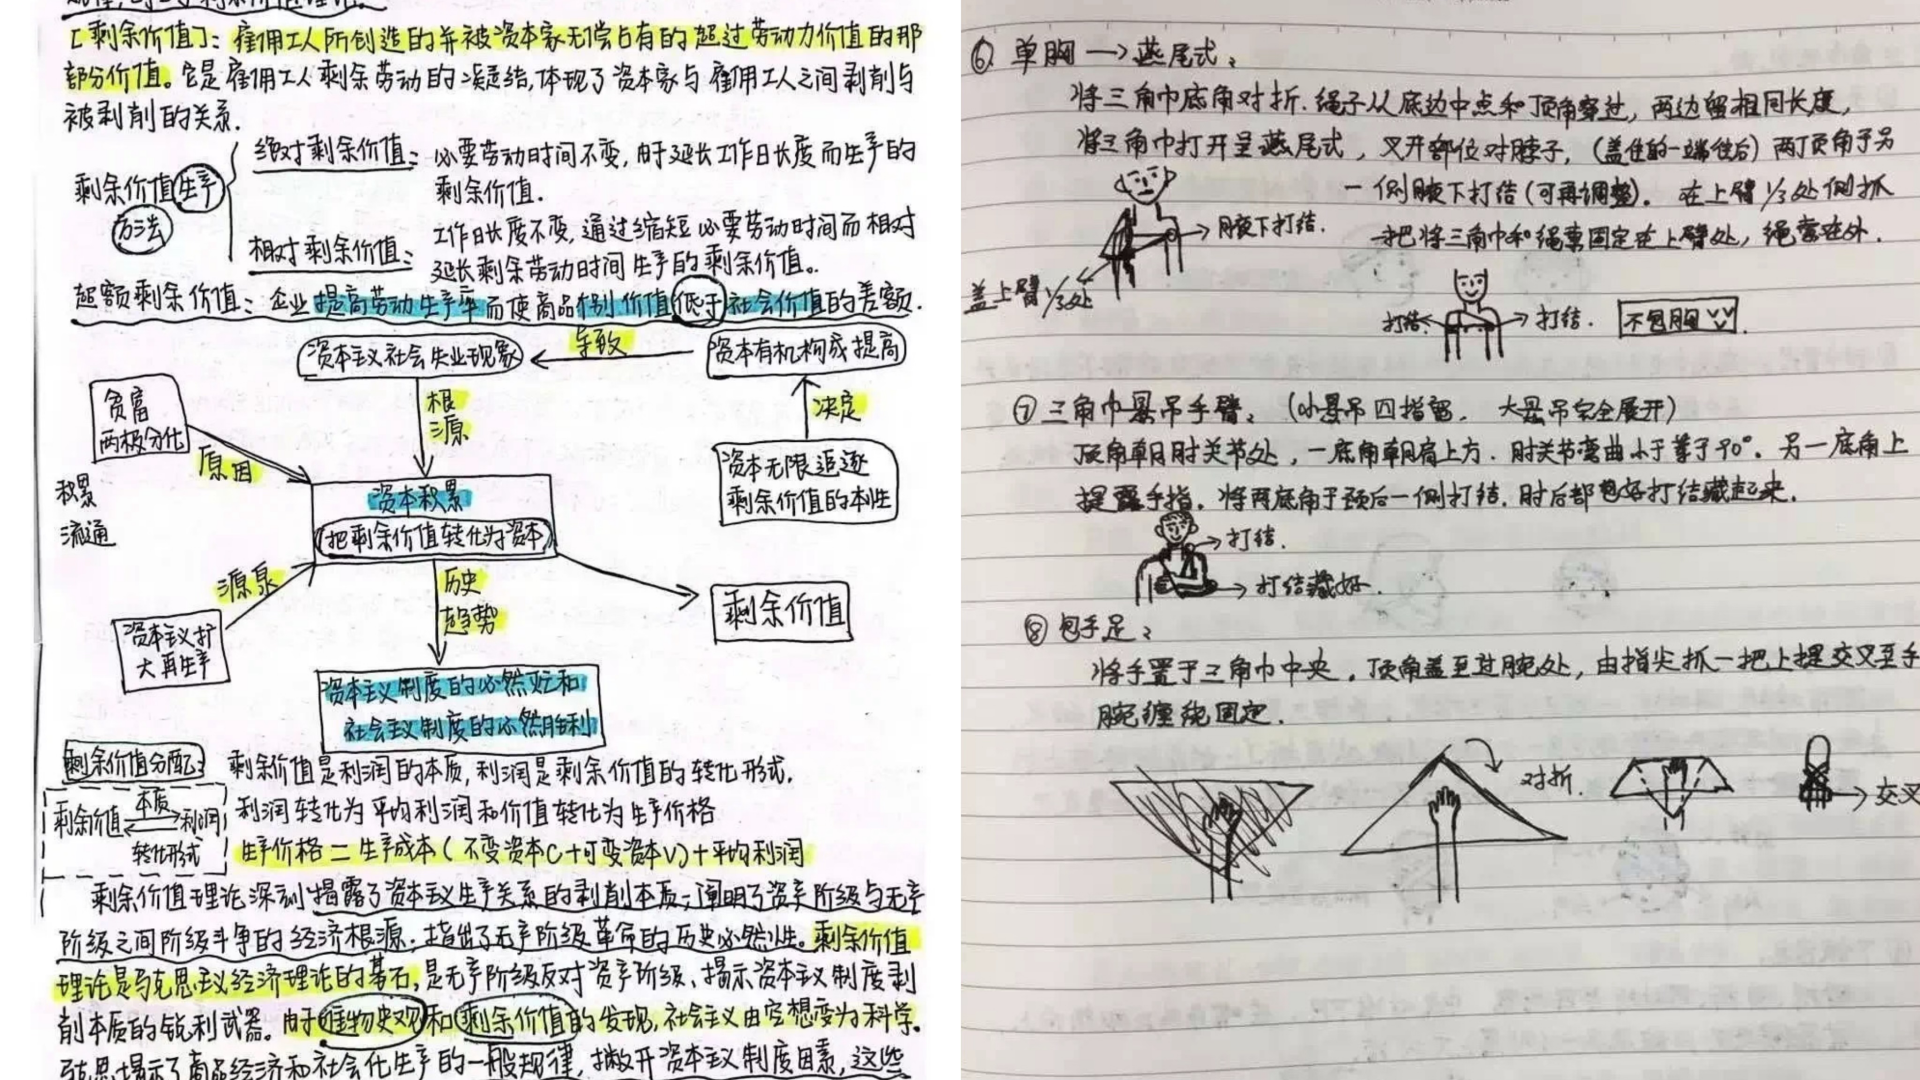 [剩余价值]：雇佣工人所创造的并被资本家无偿占有的超过劳动力价值的那
部分价值。它是雇佣工人剩余劳动的凝结，体现了资本家与雇佣工人之间剥削与
被剥削的关系.
剩余价值生产
方法
绝对剩余价值：必要劳动时间不变，由于延长工作日长度而生产的
剩余价值.
相对剩余价值：工作日长度不变，通过缩短必要劳动时间而相对
延长剩余劳动时间生产的剩余价值。
超额剩余价值：企业提高劳动生产率而使商品个别价值低于社会价值的差额.
资本主义社会失业现象
导致
资本有机构成提高
决定
资本无限追逐
剩余价值的本性
贫富
两极分化
原因
根
源
积累
流通
资本积累
把剩余价值转化为资本
源泉
资本主义扩
大再生产
历史
趋势
剩余价值
资本主义制度的必然灭亡和
社会主义制度的必然胜利
剩余价值分配：
剩余价值是利润的本质，利润是剩余价值的转化形式.
剩余价值 本质 利润
转化形式
利润转化为平均利润和价值转化为生产价格
生产价格＝生产成本(不变资本C+可变资本V)+平均利润
剩余价值理论深刻揭露了资本主义生产关系的剥削本质；阐明了资产阶级与无产
阶级之间阶级斗争的经济根源.指出了无产阶级革命的历史必然性。剩余价值
理论是马克思主义经济理论的基石，是无产阶级反对资产阶级、揭示资本主义制度剥
削本质的锐利武器。由于唯物史观和剩余价值的发现，社会主义由空想变为科学。
克思揭示了商品经济和社会化生产的一般规律，撇开资本主义制度因素，这些
⑥ 单胸→燕尾式：
将三角巾底角对折.绳子从底边中点和顶角穿过，两边留相同长度，
将三角巾打开呈燕尾式，叉开部位对脖子，(盖住的一端往后)两顶角于另
一侧腋下打结(可再调整)。在上臂1/3处侧抓
一把将三角巾和绳索固定在上臂处，绳索在外.
腋下打结.
盖上臂1/3处
打结.
打结.
不包胸
⑦三角巾悬吊手臂：(小悬吊四指宽. 大悬吊完全展开)
顶角朝肘关节处，一底角朝肩上方.肘关节弯曲小于等于90°.另一底角上
提露手指.将两底角于颈后一侧打结.肘后部包好打结藏起来.
打结.
打结藏好.
⑧包手足：
将手置于三角巾中央.顶角盖至过腕处，由指尖抓一把上提交叉至手
腕缠绕固定.
对折.
交叉